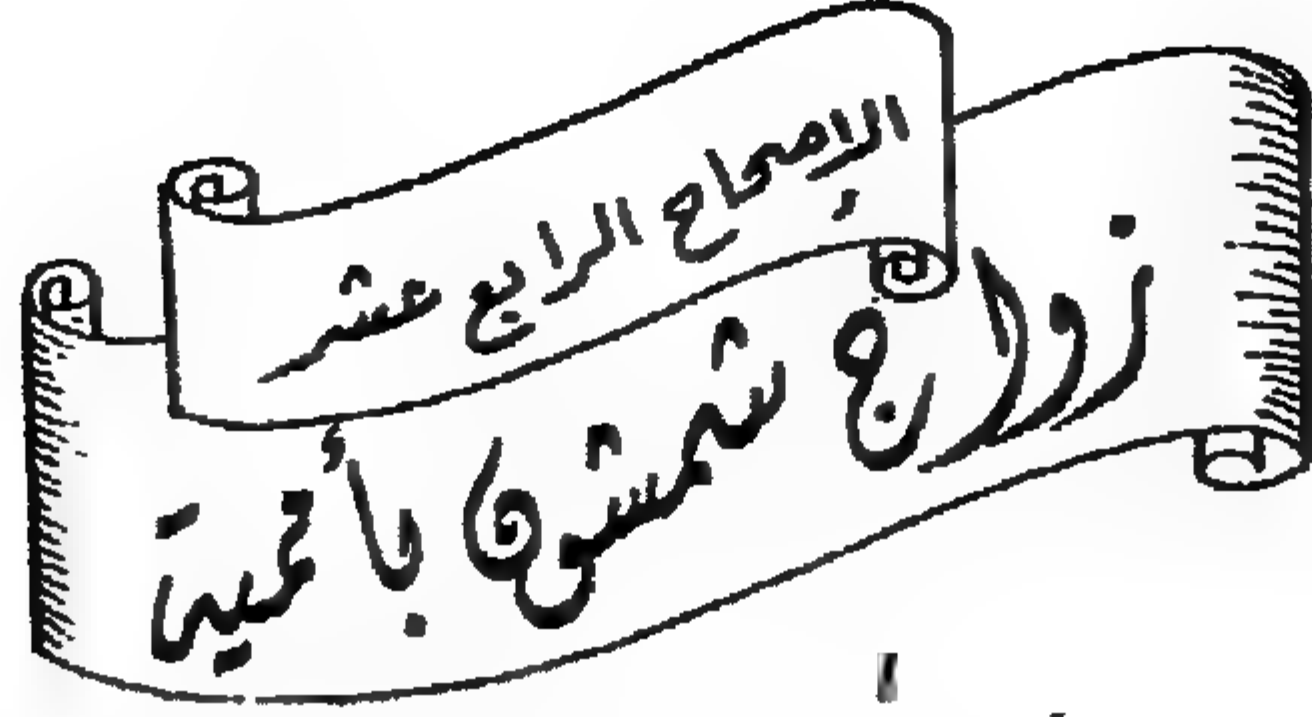 الإصحاح الرابع عشر
زواج شمشون بأممية